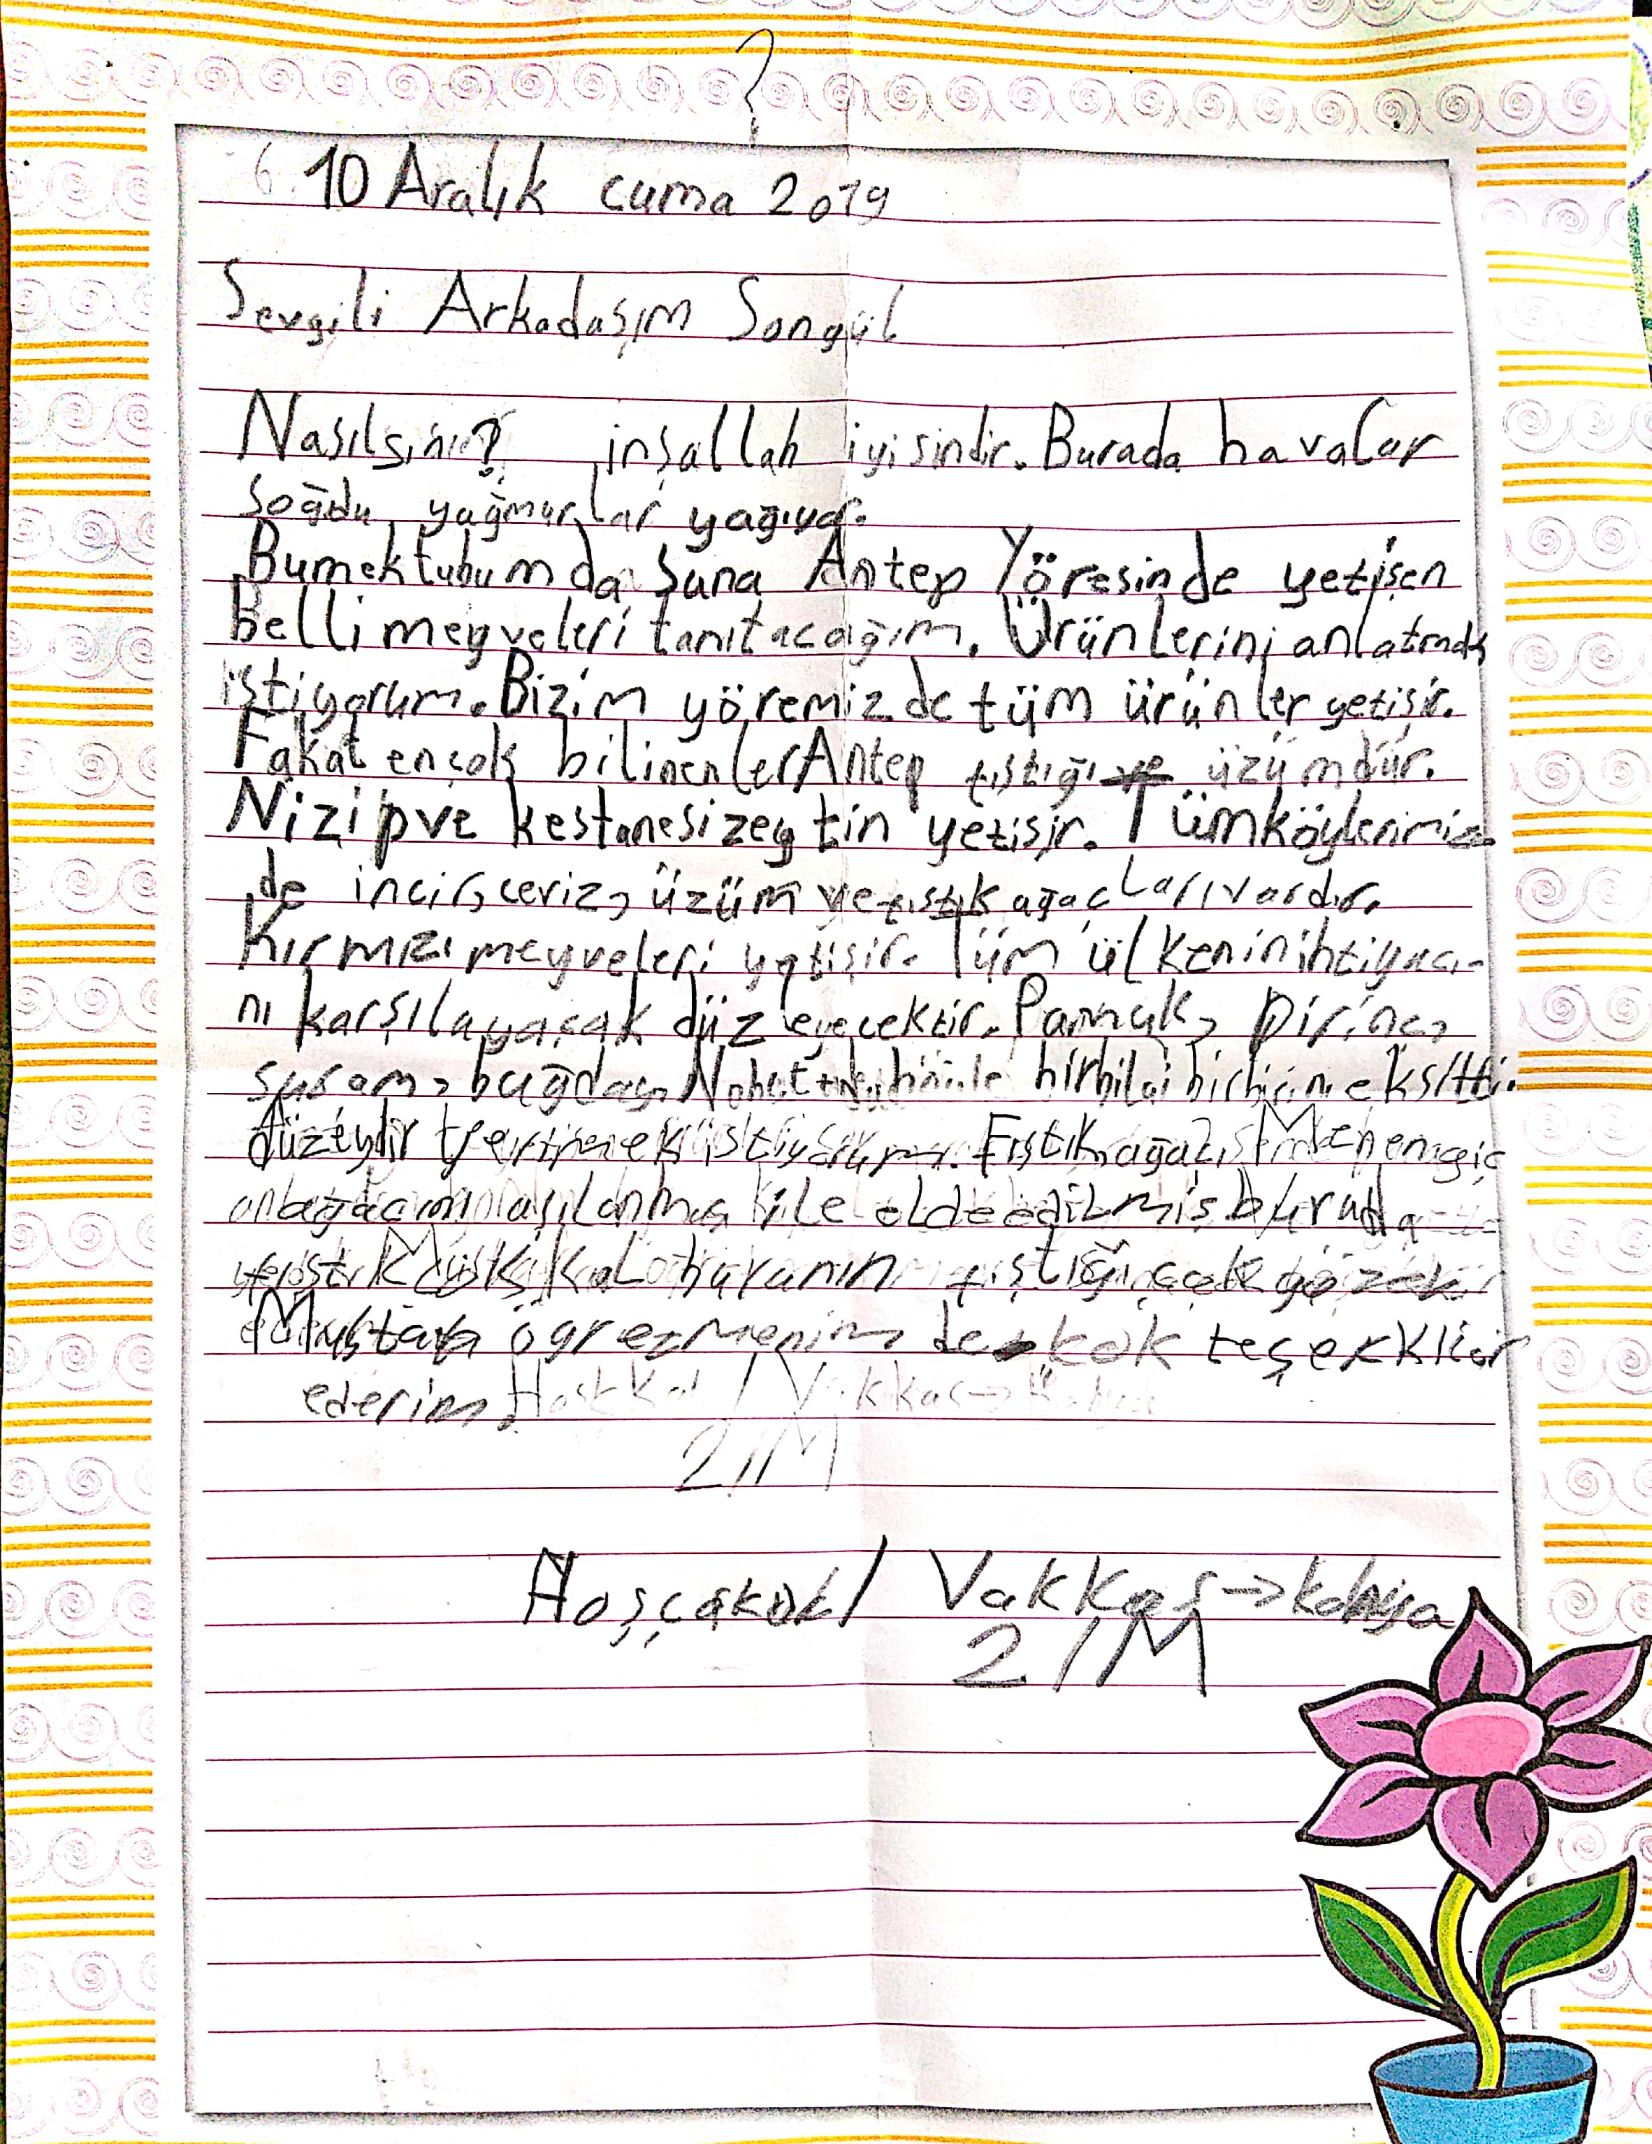 10 Aralık cuma 2019
Sevgili Arkadaşım Songül
Nasılsın? inşallah iyisindir. Burada havalar
soğdu yağmurlar yağıyor.
Bumektubumda Sana Antep Yöresinde yetişen
belli meyveleri tanıtacağım. Ürünlerini anlatmak
istiyorum. Bizim yöremizde tüm ürünler yetişir.
Fakat ençok bilinenler Antep fıstığı ve üzümdür.
Nizipve kestanesi zeytin yetişir. Tümköylerimiz
de incir, ceviz, üzüm ve fıstık ağaçları vardır.
Kırmızı meyveleri yetişir. Tüm ülkenin ihtiyacı-
nı karşılayacak düzleyecektir. Pamuk, pirinç,
susam, buğday, Nohut
düzeydir istiyorum. Fıstık ağacı
aşılanma ile elde edilmiş burada
fıstığı çok
öğretmenim de teşerkkür
ederim
2/M
Hoşçakal / Vakkas → konya
2/M